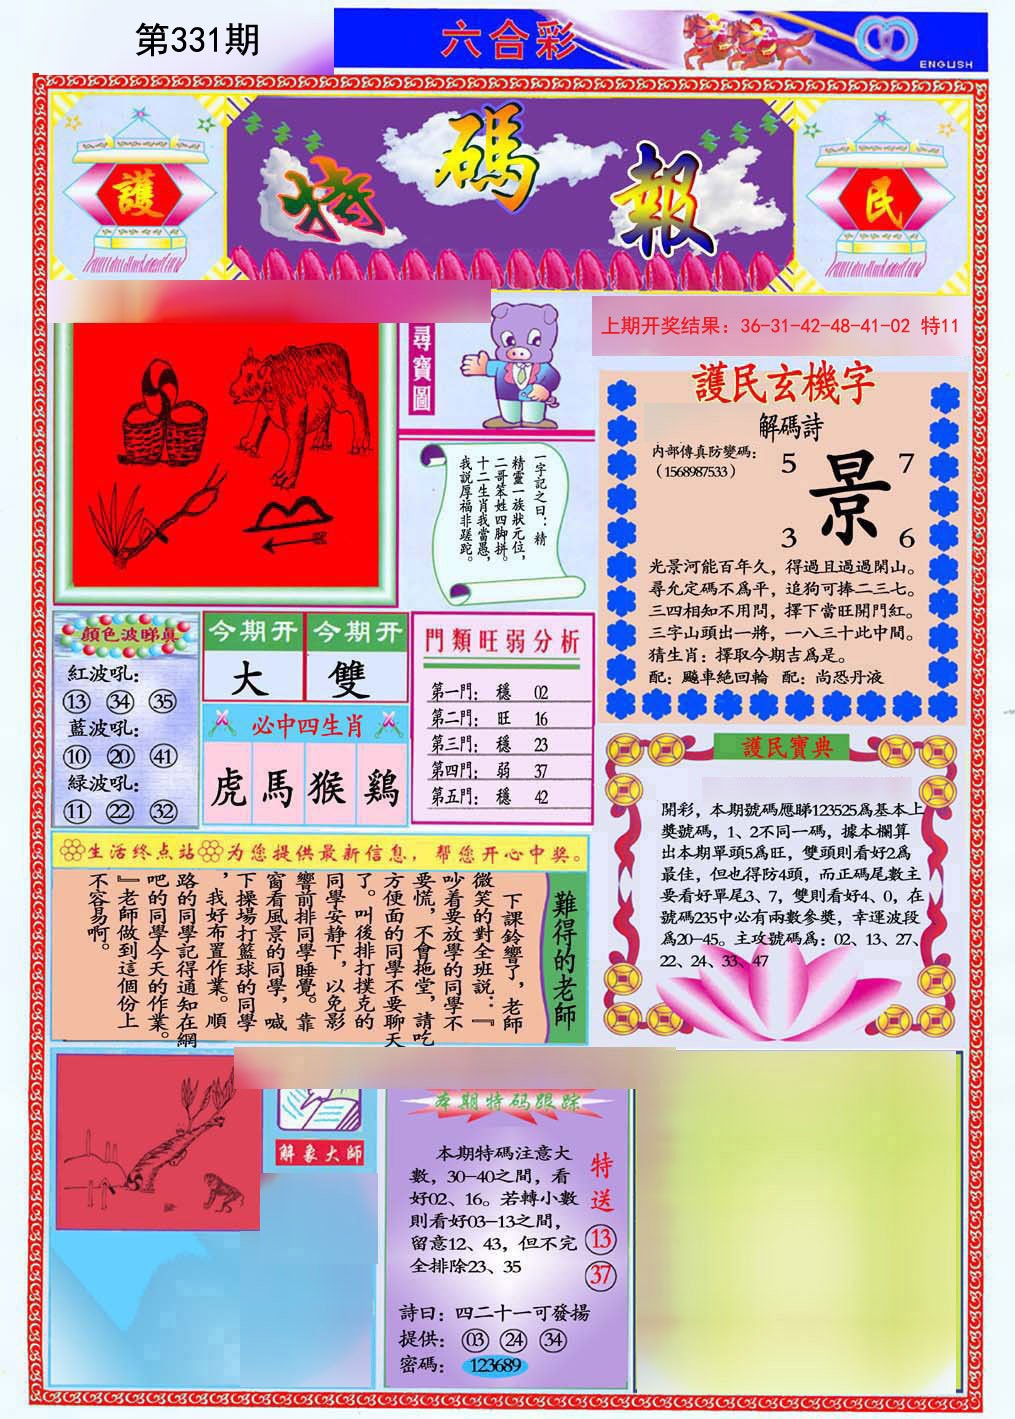 第331期
六合彩
ENGLISH
護
特碼報
民
上期开奖结果：36-31-42-48-41-02 特11
尋寶圖
一字記之曰：精
精靈一族狀元位，
二哥笨姓四脚拼。
十二生肖我當愚，
我説厚福非蹉跎。
護民玄機字
解碼詩
内部傳真防變碼：
（1568987533）
5 7
景
3 6
光景河能百年久，得過且過過閑山。
尋允定碼不爲平，追狗可捧二三七。
三四相知不用問，擇下當旺開門紅。
三字山頭出一將，一八三十此中間。
猜生肖：擇取今期吉爲是。
配：飈車絶回輪 配：尚恐丹液
顔色波睇真
紅波吼：
13 34 35
藍波吼：
10 20 41
緑波吼：
11 22 32
今期开 今期开
大 雙
必中四生肖
虎 馬 猴 鷄
門類旺弱分析
第一門： 穩 02
第二門： 旺 16
第三門： 穩 23
第四門： 弱 37
第五門： 穩 42
護民寶典
開彩，本期號碼應睇123525爲基本上
獎號碼，1、2不同一碼，據本欄算
出本期單頭5爲旺，雙頭則看好2爲
最佳，但也得防4頭，而正碼尾數主
要看好單尾3、7，雙則看好4、0，在
號碼235中必有兩數參獎，幸運波段
爲20-45。主攻號碼爲：02、13、27、
22、24、33、47
生活终点站 为您提供最新信息，帮您开心中奖。
難得的老師
下課鈴響了，老師
微笑的對全班説：『
吵着要放學的同學不
要慌，不會拖堂，請吃
方便面的同學不要聊天
了。叫後排打撲克的
同學安静下，以免影
響前排同學睡覺。靠
窗看風景的同學，喊
下操場打籃球的同學
，我好布置作業。順
路的同學記得通知在網
吧的同學今天的作業。
』老師做到這個份上
不容易啊。
解象大師
本期特码跟踪
本期特碼注意大
數，30-40之間，看
好02、16。若轉小數
則看好03-13之間，
留意12、43，但不完
全排除23、35
特送
13
37
詩曰：四二十一可發揚
提供： 03 24 34
密碼： 123689